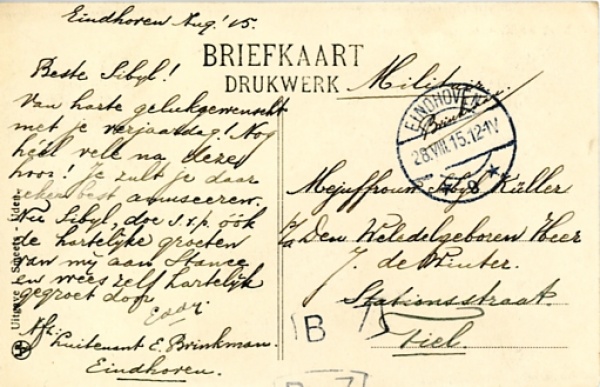 Eindhoven Aug. '15.
BRIEFKAART
DRUKWERK
Militair.
Beste Sibyl!
Van harte gelukgewenscht
met je verjaardag! Nog
héél vele na dezen
hoor! Je zult je daar
zeker best amuseeren.
Nu Sibyl, doe s.v.p. óók
de hartelijke groeten
van mij aan Stance
en wees zelf hartelijk
gegroet door
Eddy.
Afz:
Luitenant E. Brinkman.
Eindhoven.
Uitgave J. Smeets - Uden.
EINDHOVEN
28.VIII.15.12-1V
Mejuffrouw Sibyl Küller
p/a Den Weledelgeboren Heer
J. de Winter.
Stationsstraat.
Tiel.
B